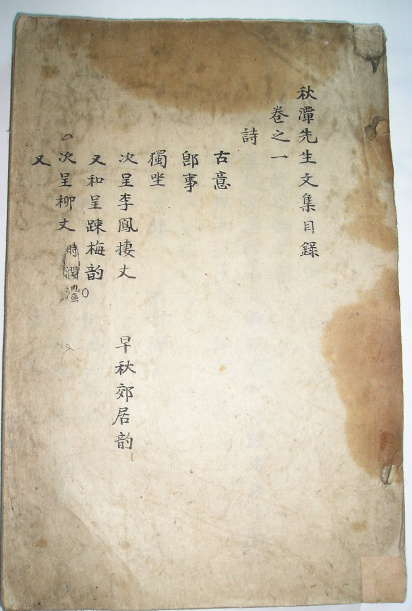 秋潭先生文集目錄
卷之一
詩
古意
卽事
獨坐
次呈李鳳捿丈 早秋郊居韵
又和呈踈梅韵
次呈柳丈
又